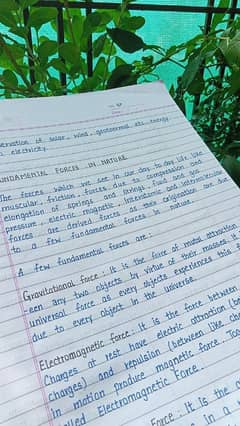 ervation of solar, wind, geothermal etc energy
electricity.
UNDAMENTAL FORCES IN NATURE
The forces which we see in our day to day life like
muscular, friction, forces due to compression and
elongation of springs and strings, fluid and gas
pressure, electric magnetic, interatomic and intermolecular
forces are derived forces as their origination are due
to a few fundamental forces in nature.
A few fundamental forces are:
Gravitational force: It is the force of mutual attraction
-een any two objects by virtue of their masses. It
universal force as every objects experiences this
due to every object in the universe.
Electromagnetic force: It is the force between
Charges at rest have electric attraction (be
charges) and repulsion (between like char
in motion produce magnetic force. Toge
lled Electromagnetic Force.
Force: It is the
s in a